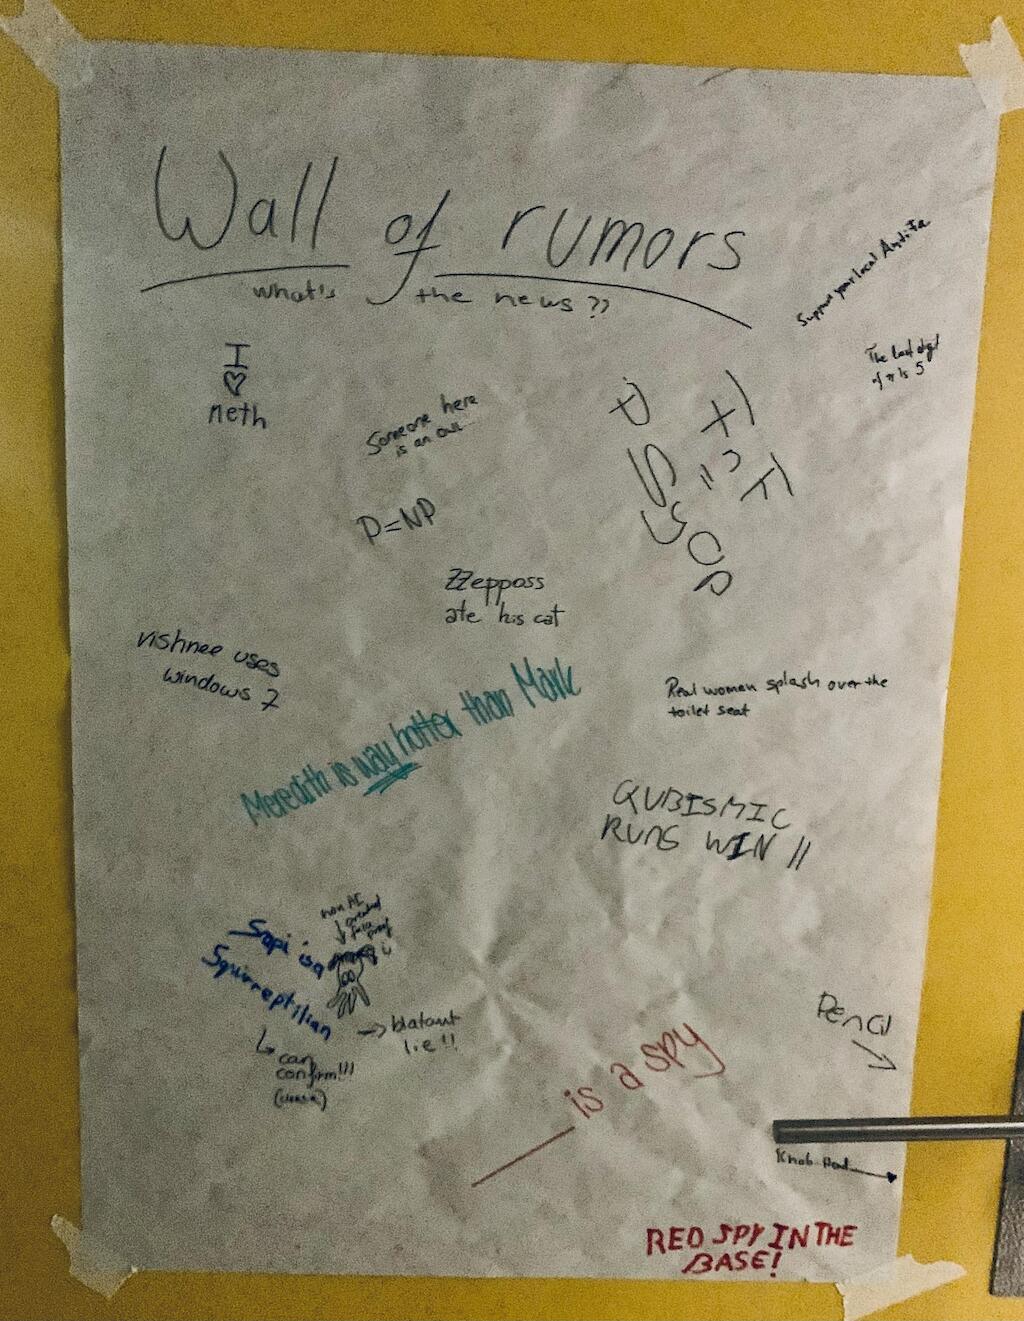 Wall of rumors
what's the news??
Support your local Antifa
The last digit
of π is 5
I
♡
meth
Someone here
is an owl...
P=NP
ZZepposs
ate his cat
vishnee uses
windows 7
Meredith is way hotter than Mark
Real women splash over the
toilet seat
QUBISMIC
RUNS WIN !!
non AI
created
proof
Sopi is a
Squirreptilian
→ blatant
lie!!
↳ can
confirm!!!
Pencil
is a spy
RED SPY IN THE
BASE!